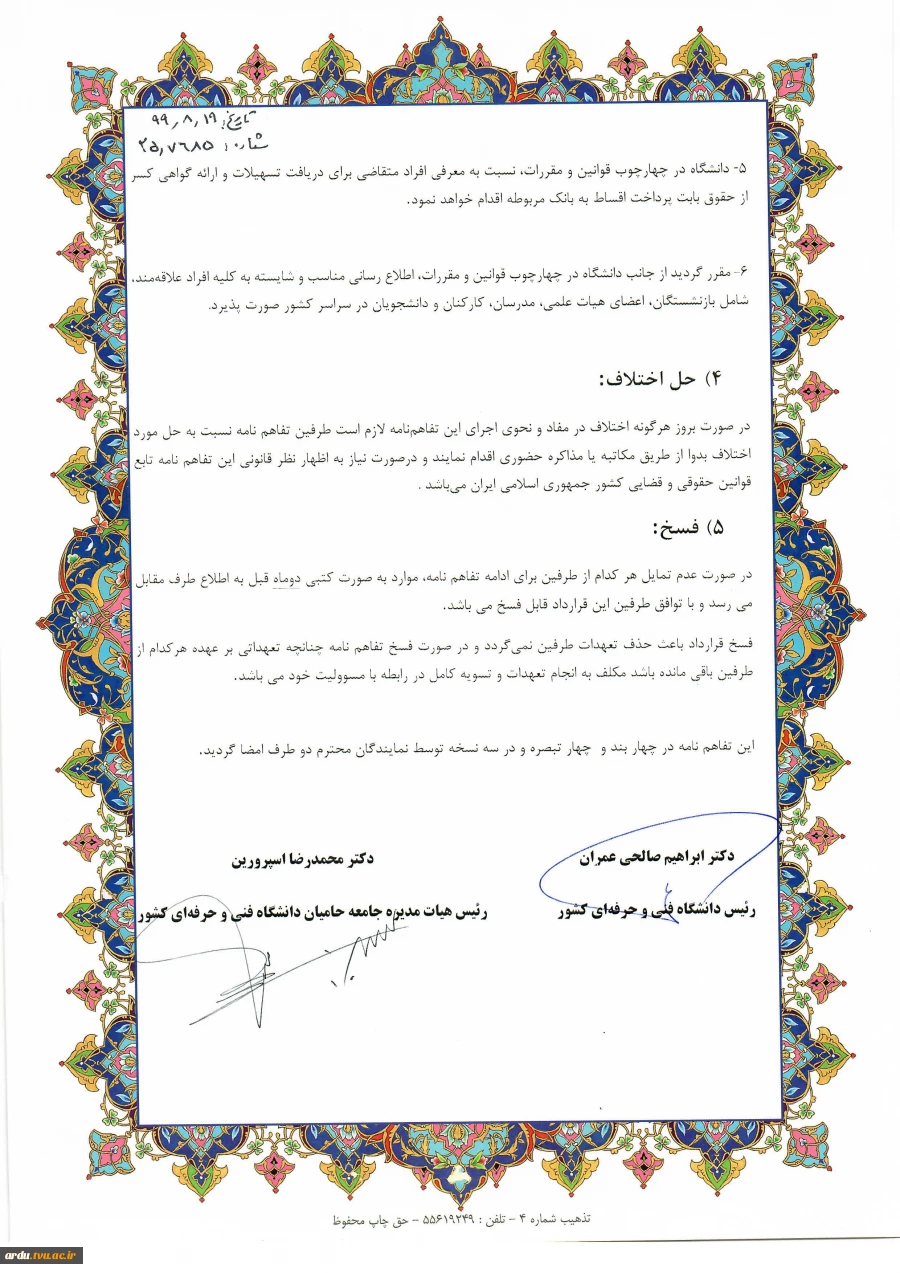 تاریخ: ۹۹٫۸٫۱۹
شماره: ۲۵٫۷۶۸۵
۵- دانشگاه در چهارچوب قوانین و مقررات، نسبت به معرفی افراد متقاضی برای دریافت تسهیلات و ارائه گواهی کسر
از حقوق بابت پرداخت اقساط به بانک مربوطه اقدام خواهد نمود.
۶- مقرر گردید از جانب دانشگاه در چهارچوب قوانین و مقررات، اطلاع رسانی مناسب و شایسته به کلیه افراد علاقه‌مند،
شامل بازنشستگان، اعضای هیات علمی، مدرسان، کارکنان و دانشجویان در سراسر کشور صورت پذیرد.
۴) حل اختلاف:
در صورت بروز هرگونه اختلاف در مفاد و نحوی اجرای این تفاهم‌نامه لازم است طرفین تفاهم نامه نسبت به حل مورد
اختلاف بدوا از طریق مکاتبه یا مذاکره حضوری اقدام نمایند و درصورت نیاز به اظهار نظر قانونی این تفاهم نامه تابع
قوانین حقوقی و قضایی کشور جمهوری اسلامی ایران می‌باشد .
۵) فسخ:
در صورت عدم تمایل هر کدام از طرفین برای ادامه تفاهم نامه، موارد به صورت کتبی دوماه قبل به اطلاع طرف مقابل
می رسد و با توافق طرفین این قرارداد قابل فسخ می باشد.
فسخ قرارداد باعث حذف تعهدات طرفین نمی‌گردد و در صورت فسخ تفاهم نامه چنانچه تعهداتی بر عهده هرکدام از
طرفین باقی مانده باشد مکلف به انجام تعهدات و تسویه کامل در رابطه با مسوولیت خود می باشد.
این تفاهم نامه در چهار بند و چهار تبصره و در سه نسخه توسط نمایندگان محترم دو طرف امضا گردید.
دکتر ابراهیم صالحی عمران
دکتر محمدرضا اسپرورین
رئیس دانشگاه فنی و حرفه‌ای کشور
رئیس هیات مدیره جامعه حامیان دانشگاه فنی و حرفه‌ای کشور
تذهیب شماره ۴ – تلفن : ۵۵۶۱۹۲۴۹ – حق چاپ محفوظ
ardu.tvu.ac.ir